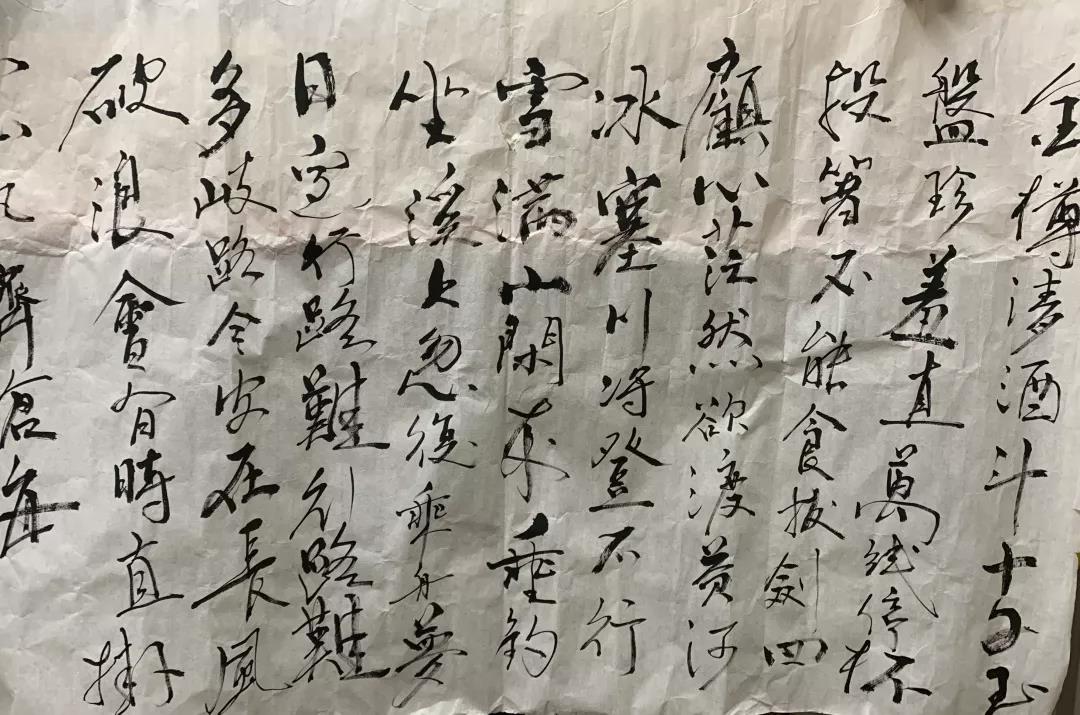 金樽清酒斗十千玉
盤珍羞直萬錢停杯
投箸不能食拔劍四
顧心茫然欲渡黃河
冰塞川将登不行
雪滿山閑來垂釣
坐溪上忽復乘舟夢
日邊行路難行路難
多岐路今安在長風
破浪會有時直掛
帆濟滄海